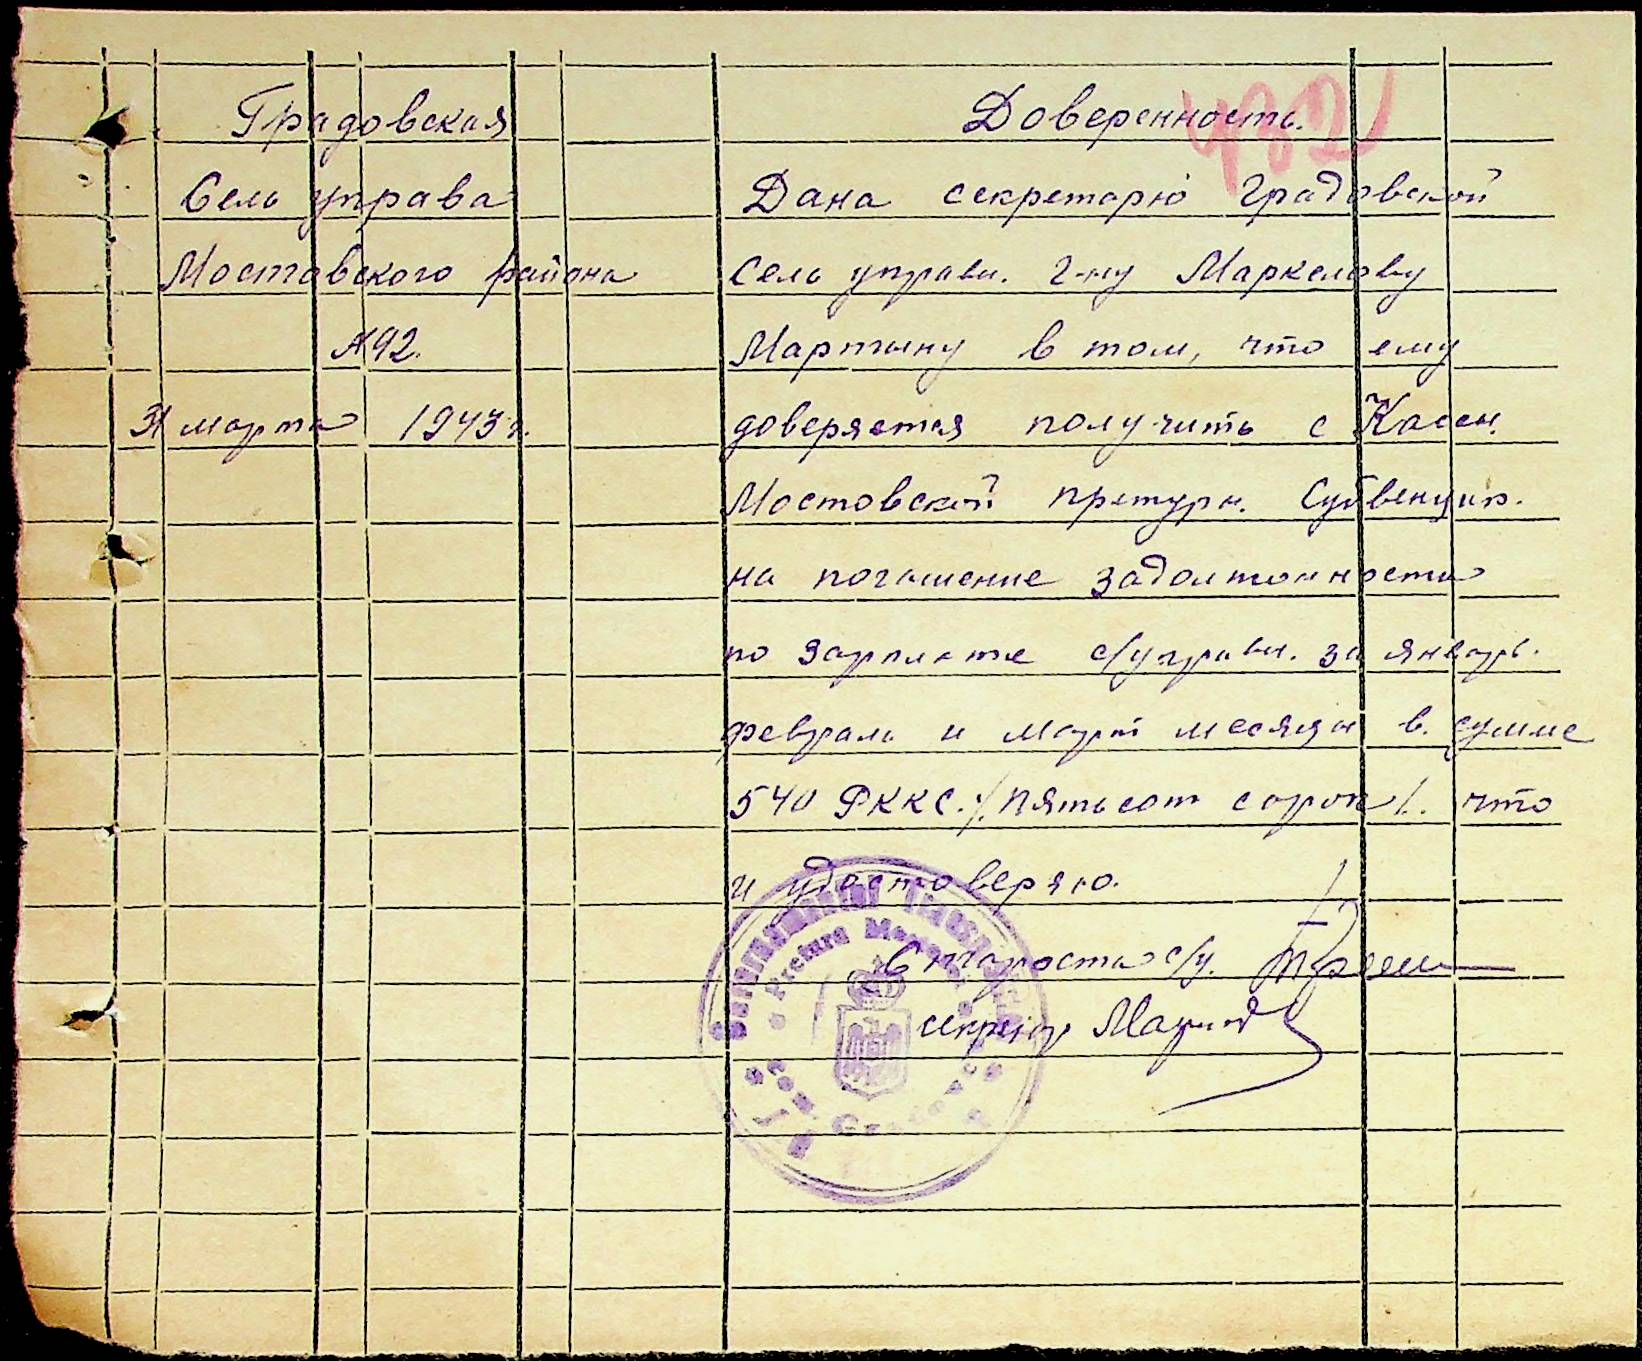 Градовская
Сель управа
Мостовского района
№92.
31 марта 1943 г.
482
Доверенность.
Дана секретарю Градовской
Сель управы. г-ну Маркелову
Мартыну в том, что ему
доверяется получить с Кассы
Мостовской претуры. Субвенцию.
на погашение задолжанности
по зарплате с/управы. за январь.
февраль и март месяцы в. сумме
540 РККС. /пятьсот сорок/. что
и удостоверяю.
Староста с/у.
секретарь
Guvernamantul Transnistriei
Prefura
Com. Gradovca